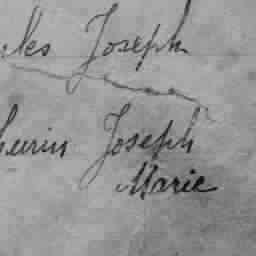 les Joseph
hurin Joseph
Marie